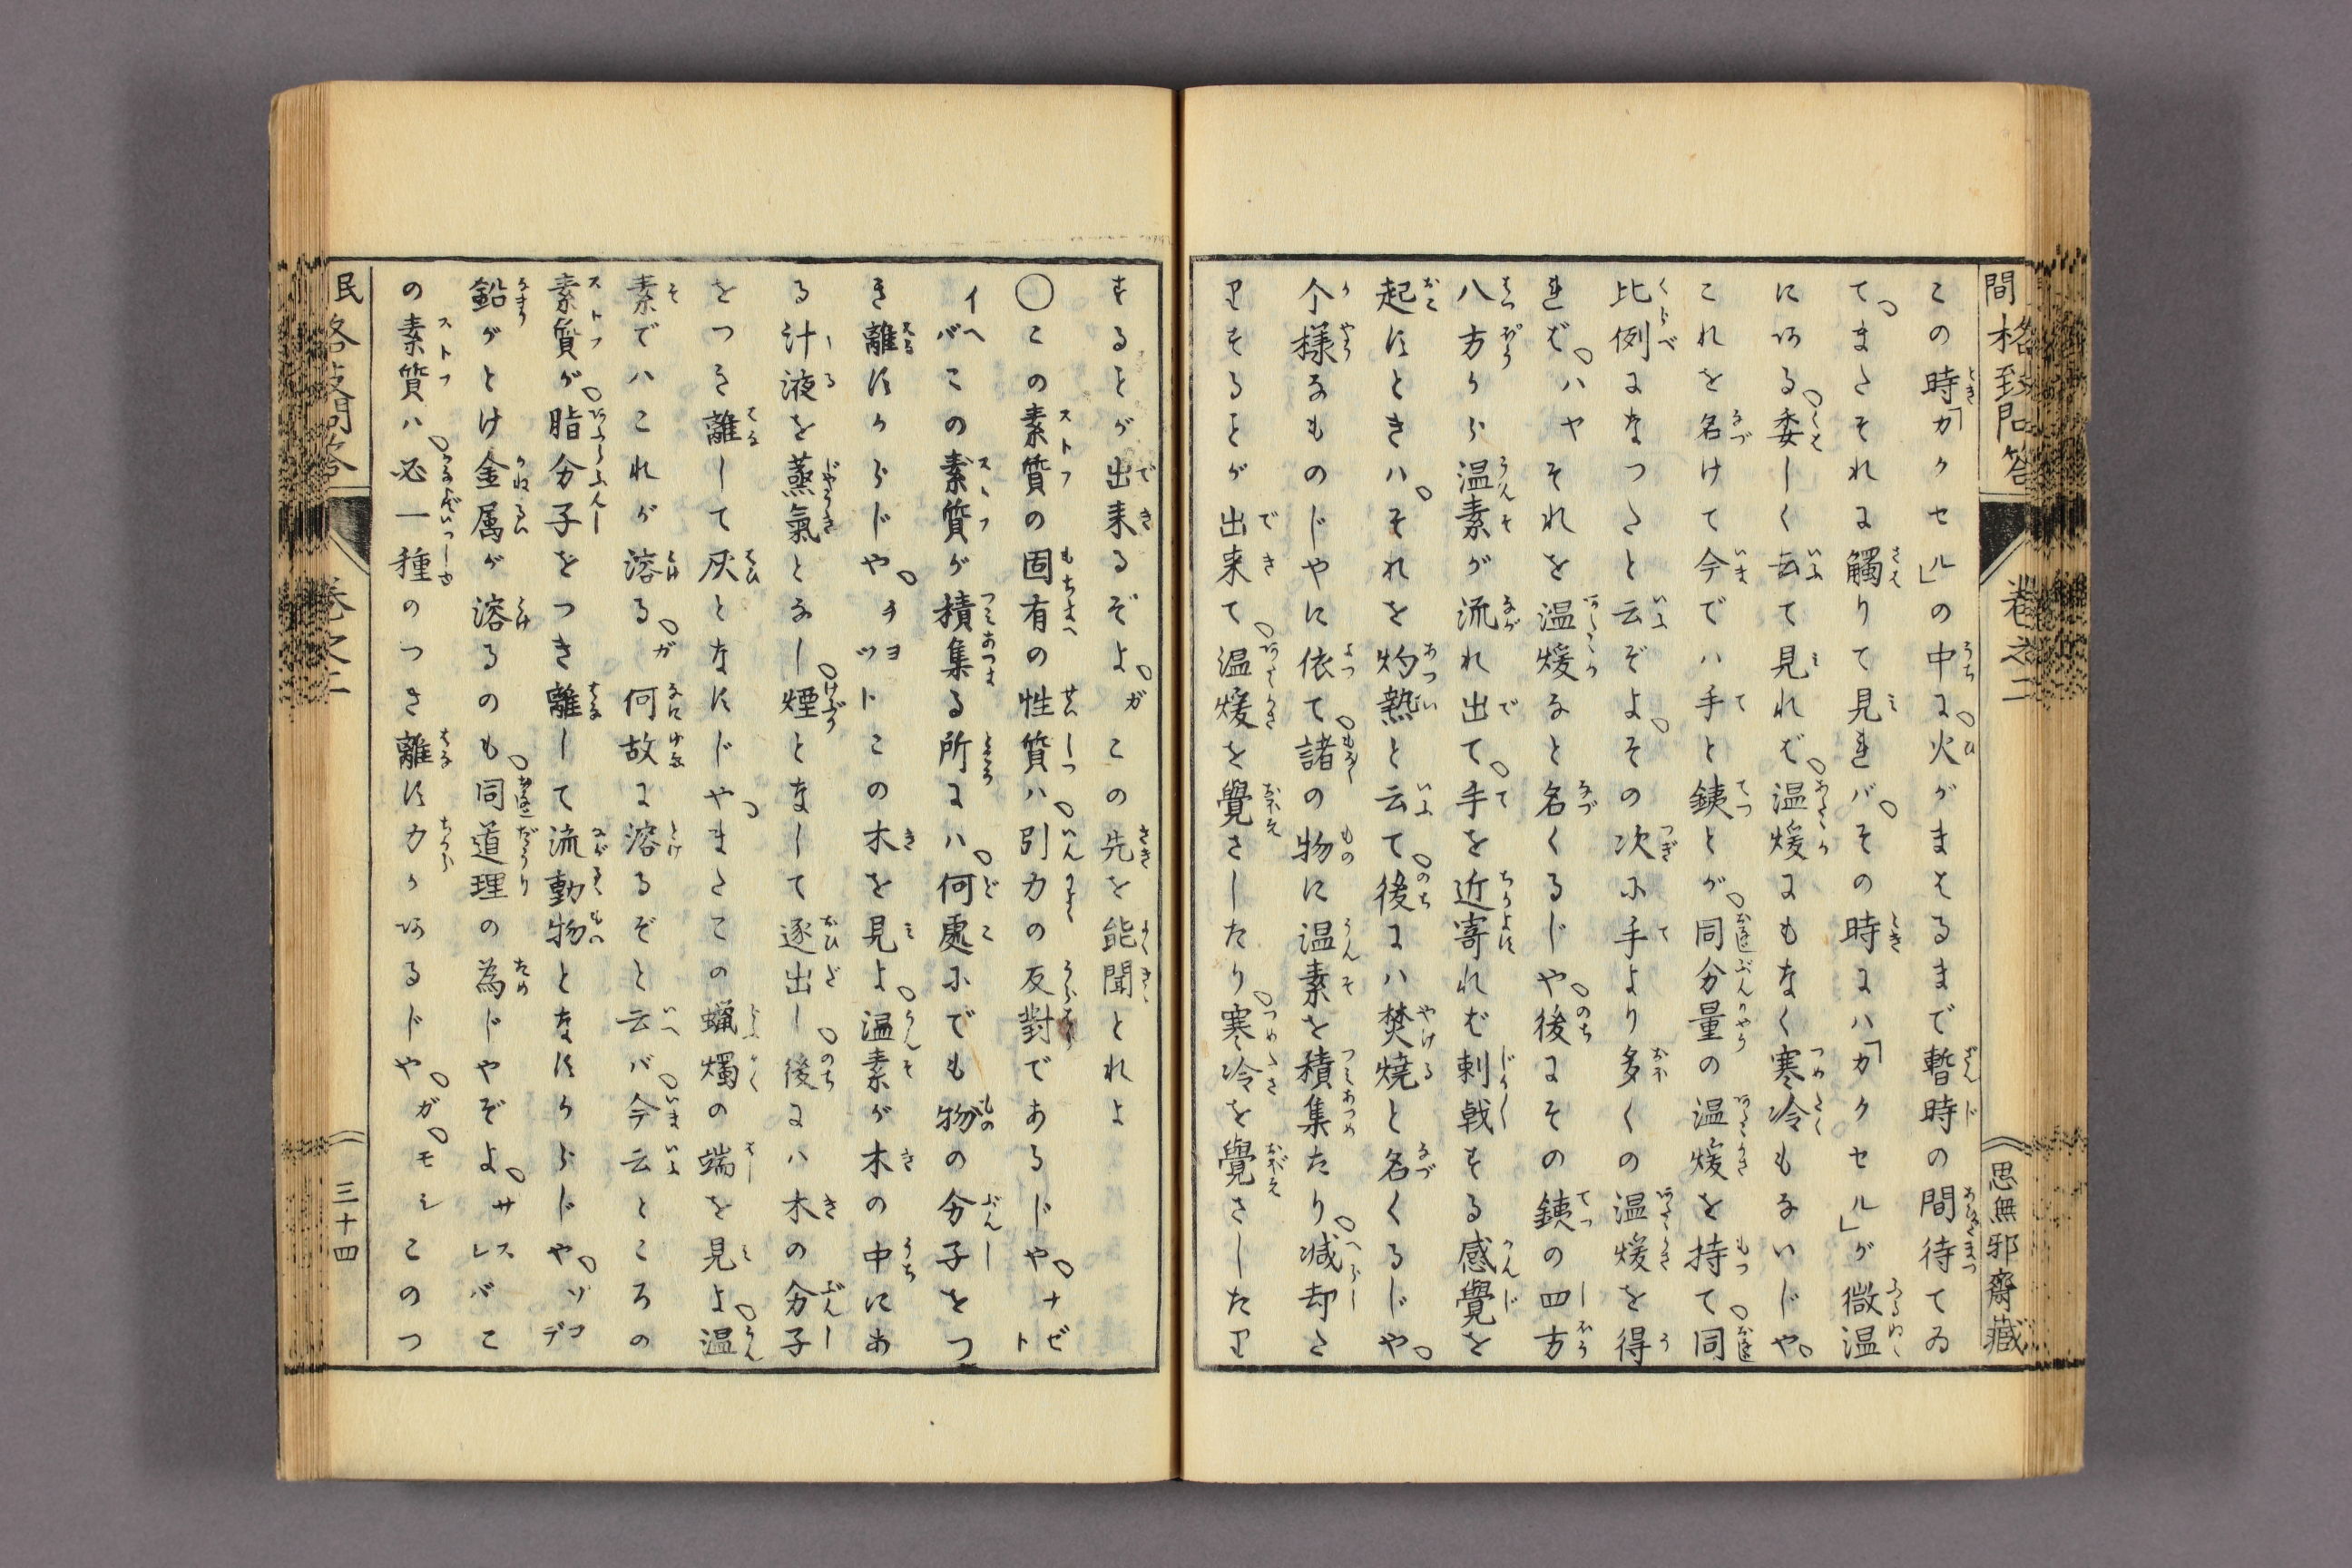 この時「カクセル」の中に火がまはるまで暫時の間待てゐ
てまたそれに觸りて見れバその時にハ「カクセル」が微温
にある委しく云て見れば温煖にもなく寒冷もないじや
これを名けて今でハ手と銕とが同分量の温煖を持て同
比例になつたと云ぞよその次に手より多くの温煖を得
ればハヤそれを温煖なと名くるじや後にその銕の四方
八方から温素が流れ出て手を近寄れば刺戟する感覺を
起すときハそれを灼熱と云て後にハ焚燒と名くるじや
个樣なものじやに依て諸の物に温素を積集たり减却た
りすることが出来て温煖を覺さしたり寒冷を覺さしたり
することが出来るぞよガこの先を能聞とれよ
〇この素質の固有の性質ハ引力の反對であるじやナゼト
イヘバこの素質が積集る所にハ何處にでも物の分子をつ
き離すからじやチヨツトこの木を見よ温素が木の中にあ
る汁液を蒸氣となし煙となして逐出し後にハ木の分子
をつき離して灰となすじやまたこの蝋燭の端を見よ温
素でハこれが溶るガ何故に溶るぞと云バ今云ところの
素質が脂分子をつき離して流動物となすからじやソコデ
鉛がとけ金属が溶るのも同道理の為じやぞよサスレバこ
の素質ハ必一種のつき離す力があるじやガモシこのつ
民格致問答 巻之二 三十四
間格致問答 巻之二 思無邪齋藏